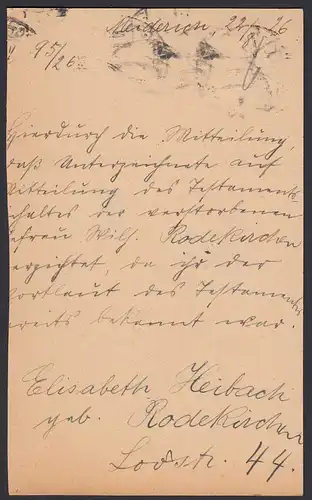 Meiderich, 22/8 26
V 95/26
Hierdurch die Mitteilung,
daß Unterzeichnete auf
Mitteilung des Testaments-
inhaltes der verstorbenen
Ehefrau Wilh. Rodekirchen
verzichtet, da ihr der
Wortlaut des Testamentes
bereits bekannt war.
Elisabeth Heibach
geb. Rodekirchen
str. 44.